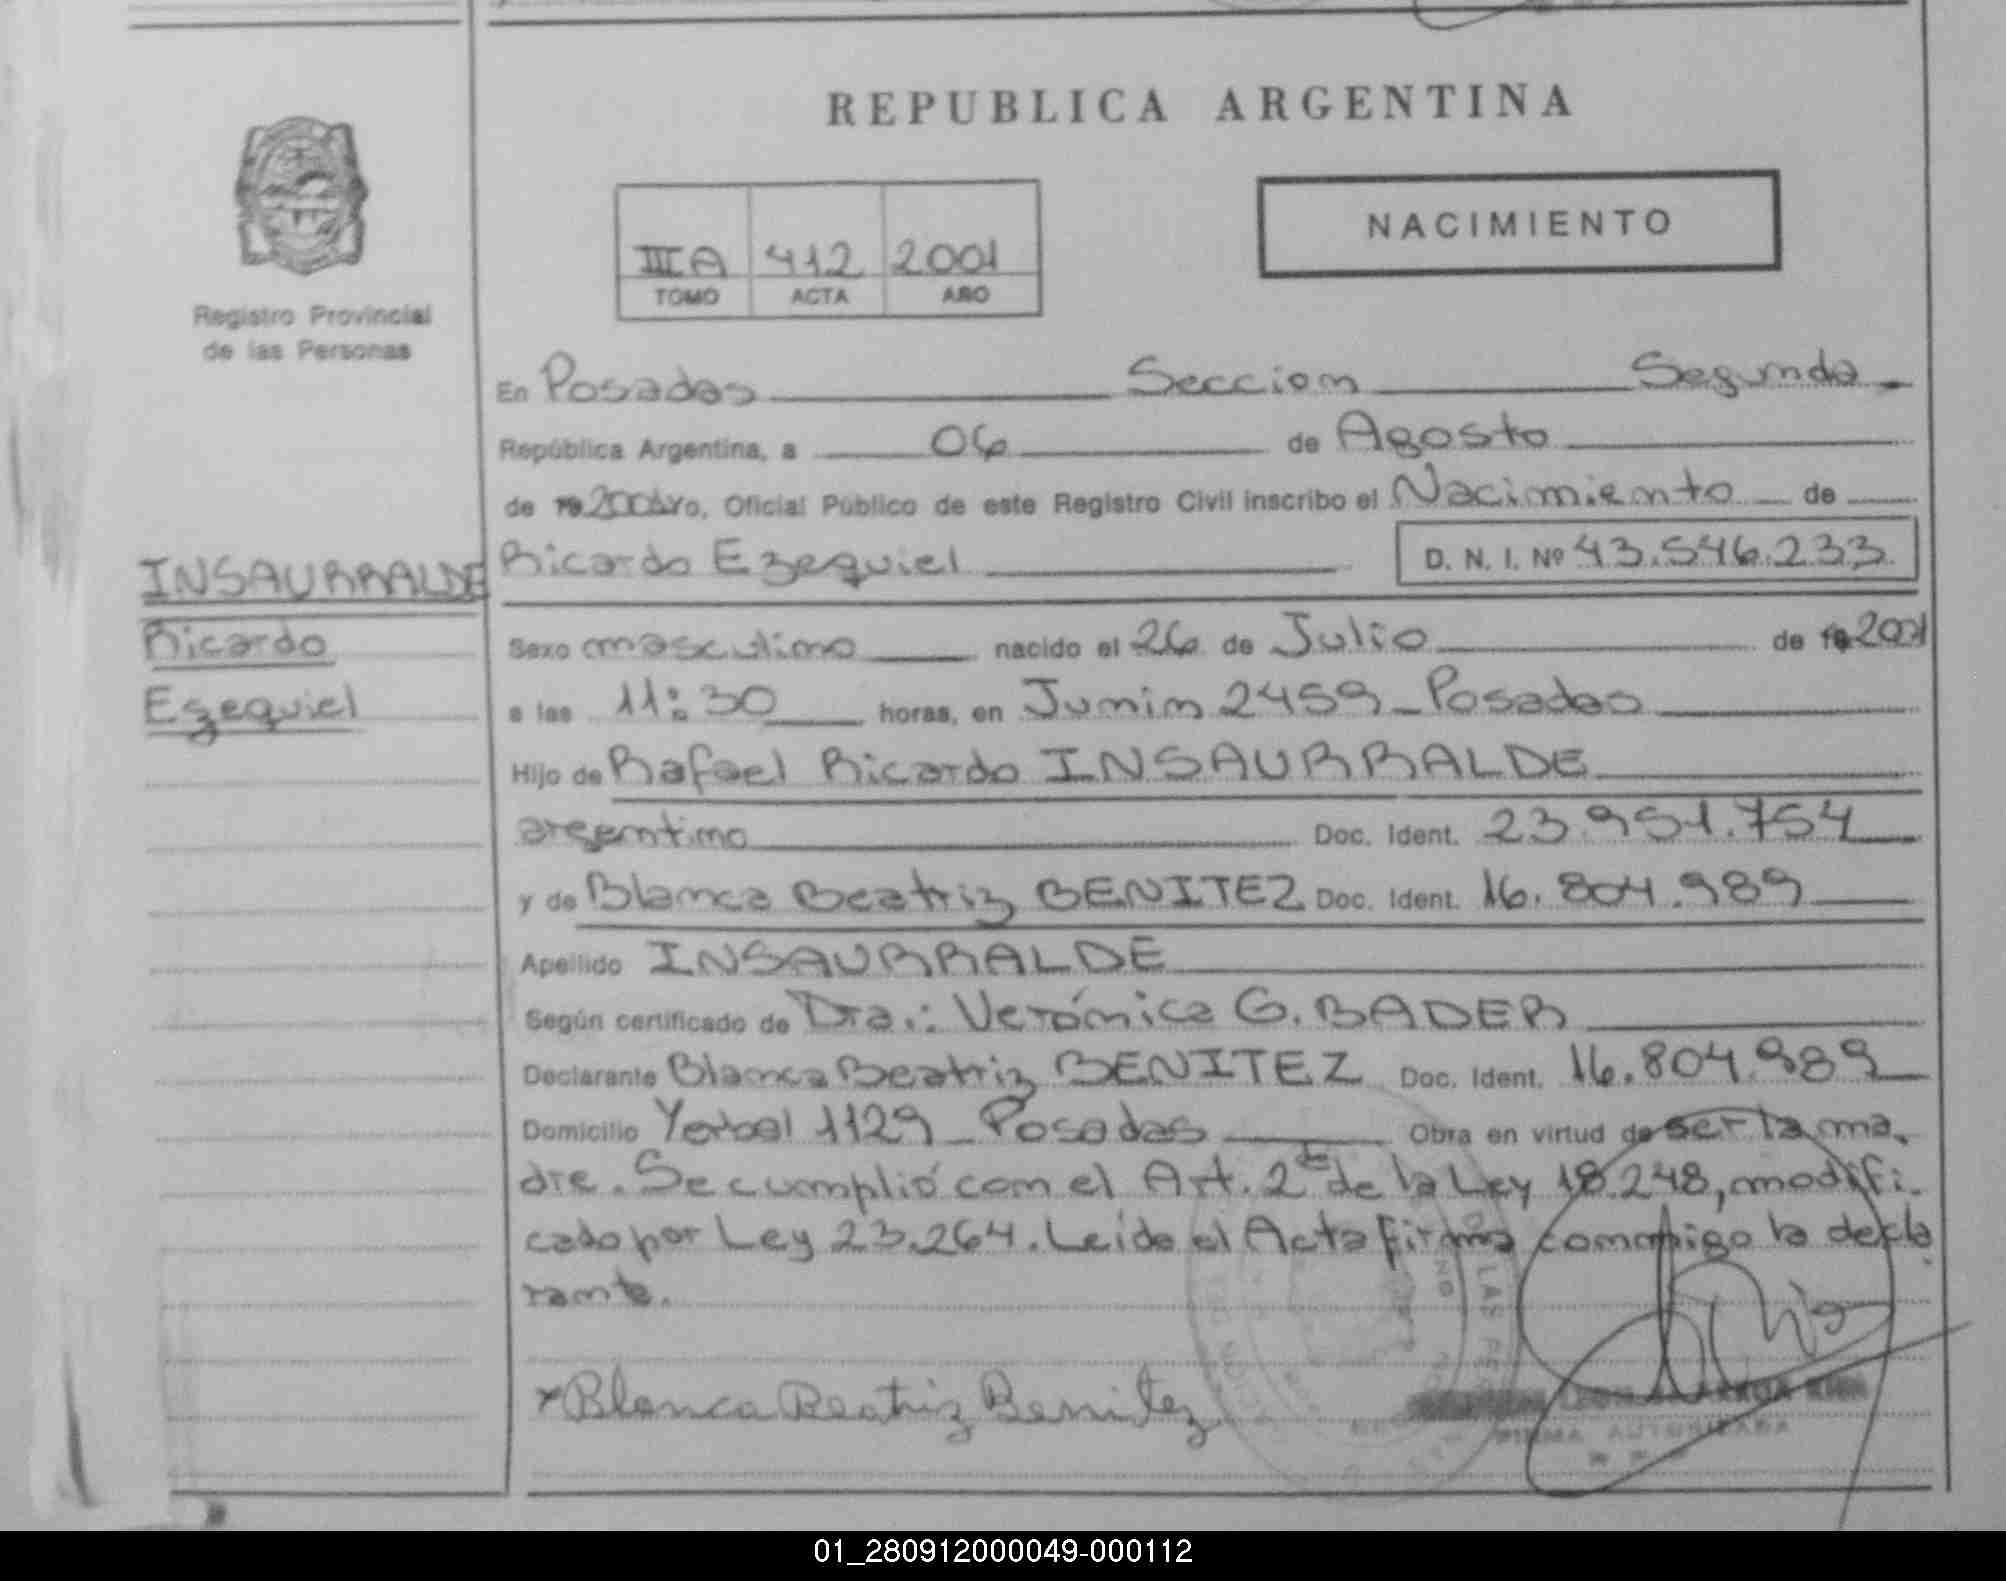 REPUBLICA ARGENTINA
NACIMIENTO
IIIA 412 2001
TOMO ACTA AÑO
Registro Provincial
de las Personas
En Posadas Seccion Segunda
República Argentina, a 06 de Agosto
de 19 2001 yo, Oficial Público de este Registro Civil inscribo el Nacimiento de
INSAURRALDE
Ricardo
Ezequiel
Ricardo Ezequiel D. N. I. Nº 43.546.233
Sexo masculino nacido el 26 de Julio de 19 2001
a las 11:30 horas, en Junin 2459 - Posadas
Hijo de Rafael Ricardo INSAURRALDE
argentino Doc. Ident. 23.951.754
y de Blanca Beatriz BENITEZ Doc. Ident. 16.804.989
Apellido INSAURRALDE
Según certificado de Dra.: Verónica G. BADER
Declarante Blanca Beatriz BENITEZ Doc. Ident. 16.804.989
Domicilio Yerbal 1129 - Posadas Obra en virtud de ser la ma.
dre. Se cumplió con el Art. 2 de la Ley 18.248, modifi.
cado por Ley 23.264. Leída el Acta firma conmigo la decla
rante.
x Blanca Beatriz Benitez
FIRMA AUTORIZADA
01_280912000049-000112